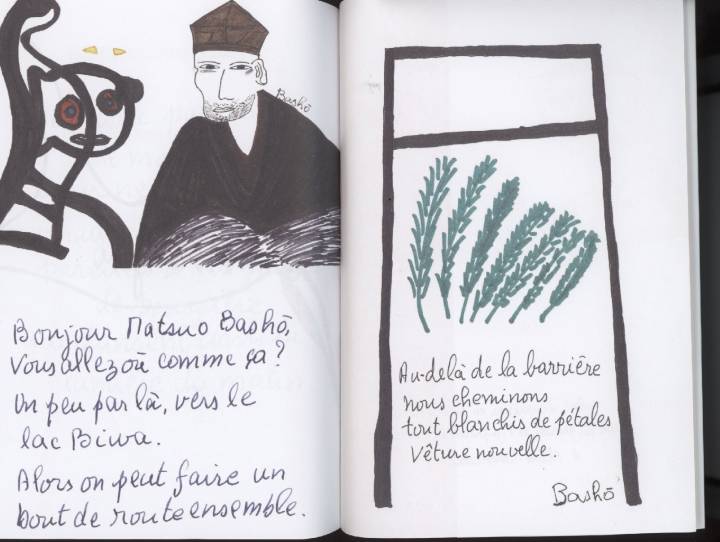 Bashō
Bonjour Matsuo Bashō,
Vous allez où comme ça ?
Un peu par là, vers le
lac Biwa.
Alors on peut faire un
bout de route ensemble.
Au-delà de la barrière
nous cheminons
tout blanchis de pétales
Vêture nouvelle.
Bashō